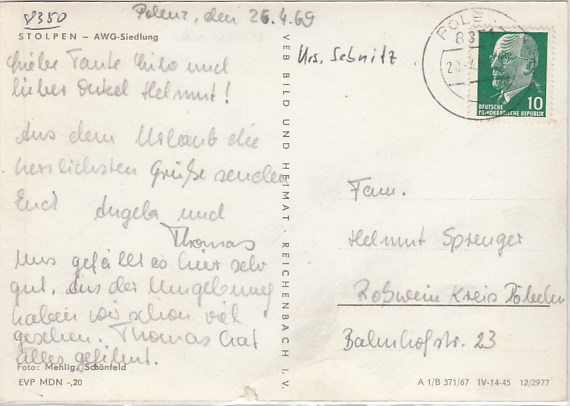 8350
Polenz, den 26.4.69
STOLPEN – AWG-Siedlung
Liebe Tante und
lieber Onkel Helmut!
Aus dem Urlaub die
herzlichsten Grüße senden
Euch Angela und
Thomas
Uns gefällt es hier sehr
gut. Aus der Umgebung
haben wir schon viel
gesehen. Thomas hat
alles gefilmt.
Foto: Mehlig, Schönfeld
EVP MDN -,20
VEB BILD UND HEIMAT · REICHENBACH I. V.
Krs. Sebnitz
POLE
DEUTSCHE
DEMOKRATISCHE REPUBLIK
10
Fam.
Helmut Sprenger
Roßwein Kreis Döbeln
Bahnhofstr. 23
A 1/B 371/67 IV-14-45 12/2977